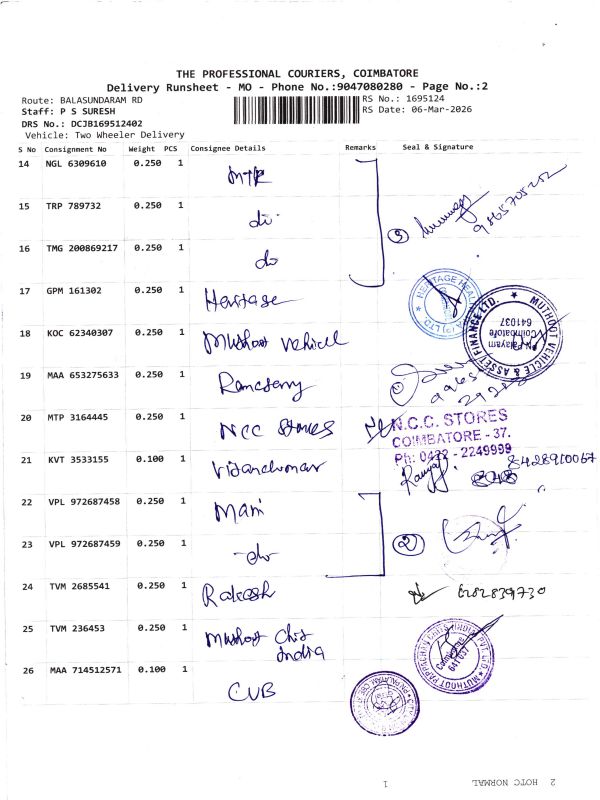 THE PROFESSIONAL COURIERS, COIMBATORE
Delivery Runsheet - MO - Phone No.:9047080280 - Page No.:2
Route: BALASUNDARAM RD
RS No.: 1695124
Staff: P S SURESH
RS Date: 06-Mar-2026
DRS No.: DCJB169512402
Vehicle: Two Wheeler Delivery
S No Consignment No Weight PCS Consignee Details Remarks Seal & Signature
14 NGL 6309610 0.250 1 MTP
15 TRP 789732 0.250 1 do
16 TMG 200869217 0.250 1 do
3
9865705202
17 GPM 161302 0.250 1 Heritage
HERITAGE
18 KOC 62340307 0.250 1 Muthoot Vehicle
MUTHOOT VEHICLE & ASSET FINANCE LTD.
Coimbatore
641037
19 MAA 653275633 0.250 1
20 MTP 3164445 0.250 1 NCC Stores
N.C.C. STORES
COIMBATORE - 37.
Ph: 0422 - 2249999
21 KVT 3533155 0.100 1
8428910067
22 VPL 972687458 0.250 1 Mani
23 VPL 972687459 0.250 1 -do-
2
24 TVM 2685541 0.250 1 Rakesh
6282839730
25 TVM 236453 0.250 1 Muthoot Chit
India
MUTHOOT PAPPACHAN CHITS INDIA PVT. LTD.
Coimbatore
641037
26 MAA 714512571 0.100 1 CUB
1
2 HOTC NORMAL